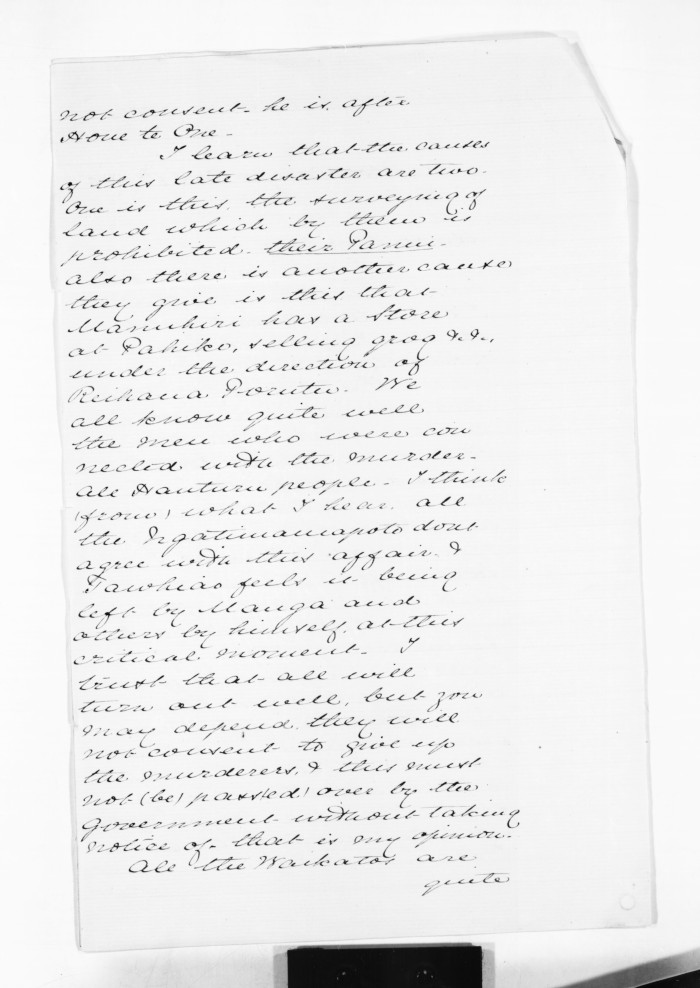 not consent - he is after
Hone te One -
I learn that the causes
of this late disaster are two -
One is this, the surveying of
land which by them is
prohibited. their Panui -
also there is another cause
they give is this that
Manuhiri has a Store
at Pahiko, selling grog &c &c,
under the direction of
Reihana Porutu. We
all know quite well
the men who were con
nected with the murder -
all Hauturu people - I think
(from) what I hear, all
the Ngatimaniapoto dont
agree with this affair &
Tawhiao feels it being
left by Manga and
others by himself, at this
critical moment - I
trust that all will
turn out well, but you
may depend they will
not consent to give up
the murderers, & this must
not (be) passed over by the
Government without taking
notice of - that is my opinion -
All the Waikatos are
quite